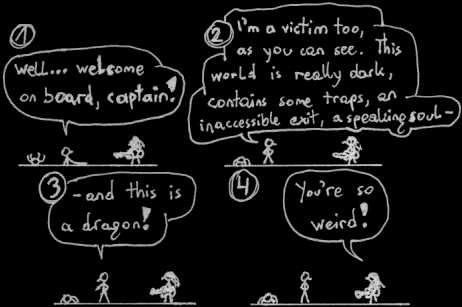 1
Well... welcome
on board, captain!
2
I'm a victim too,
as you can see. This
world is really dark,
contains some traps, an
inaccessible exit, a speaking soul-
3
-and this is
a dragon!
4
You're so
weird!